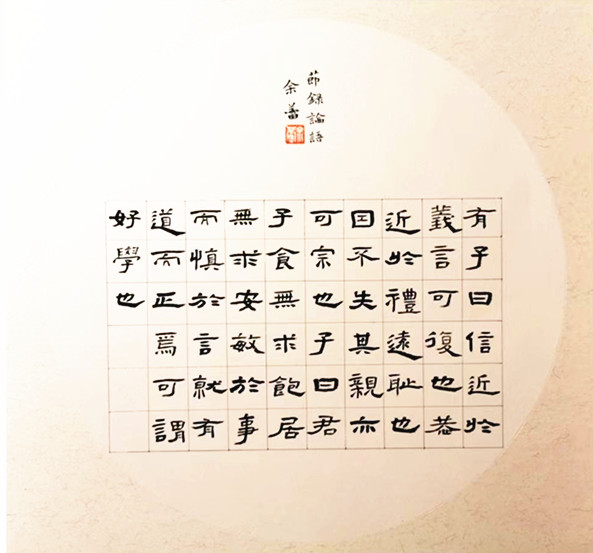 節録論語
余蕾
有子曰信近於
義言可復也恭
近於禮遠耻也
囙不失其親亦
可宗也子曰君
子食無求飽居
無求安敏於事
而慎於言就有
道而正焉可謂
好學也